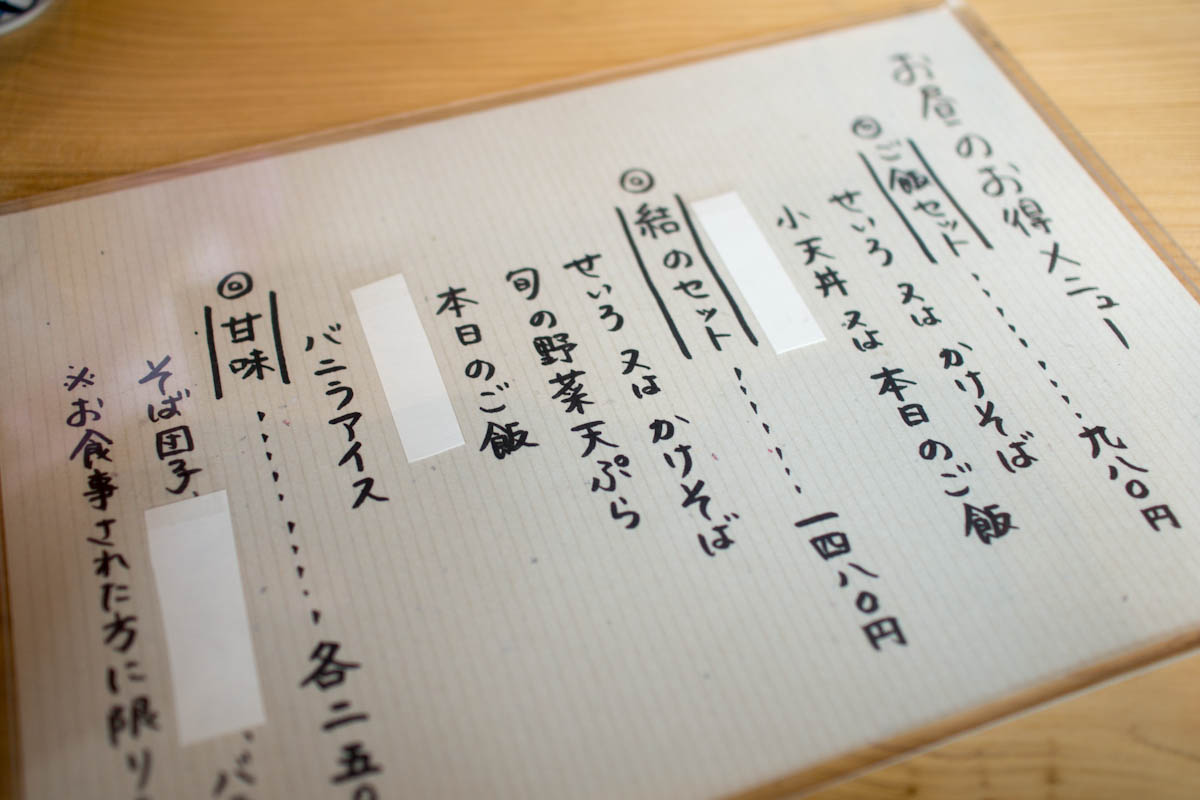 お昼のお得メニュー
◎ご飯セット……九八〇円
せいろ 又は かけそば
小天丼 又は 本日のご飯
◎結のセット……一四八〇円
せいろ 又は かけそば
旬の野菜天ぷら
本日のご飯
バニラアイス
◎甘味……各二五〇
そば団子、、バ
※お食事された方に限り